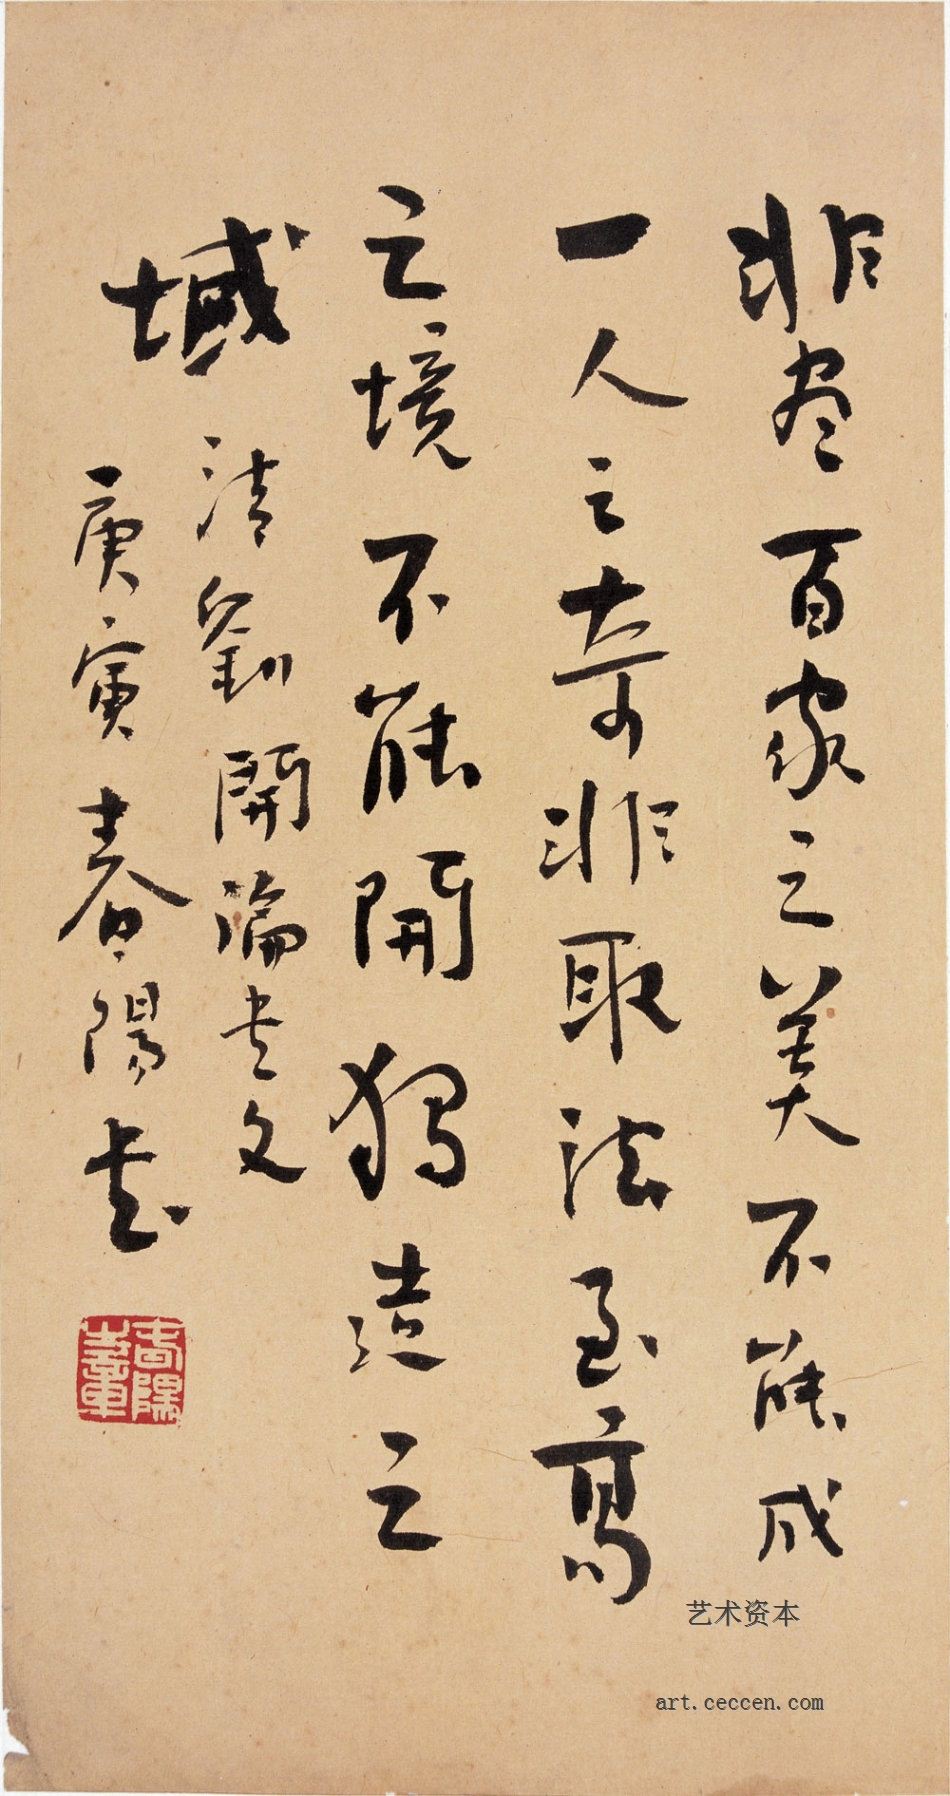 非尽百家之美不能成
一人之奇非取法至高
之境不能開獨造之
域
清劉開論書文
庚寅春陽書
艺术资本
art.ceccen.com